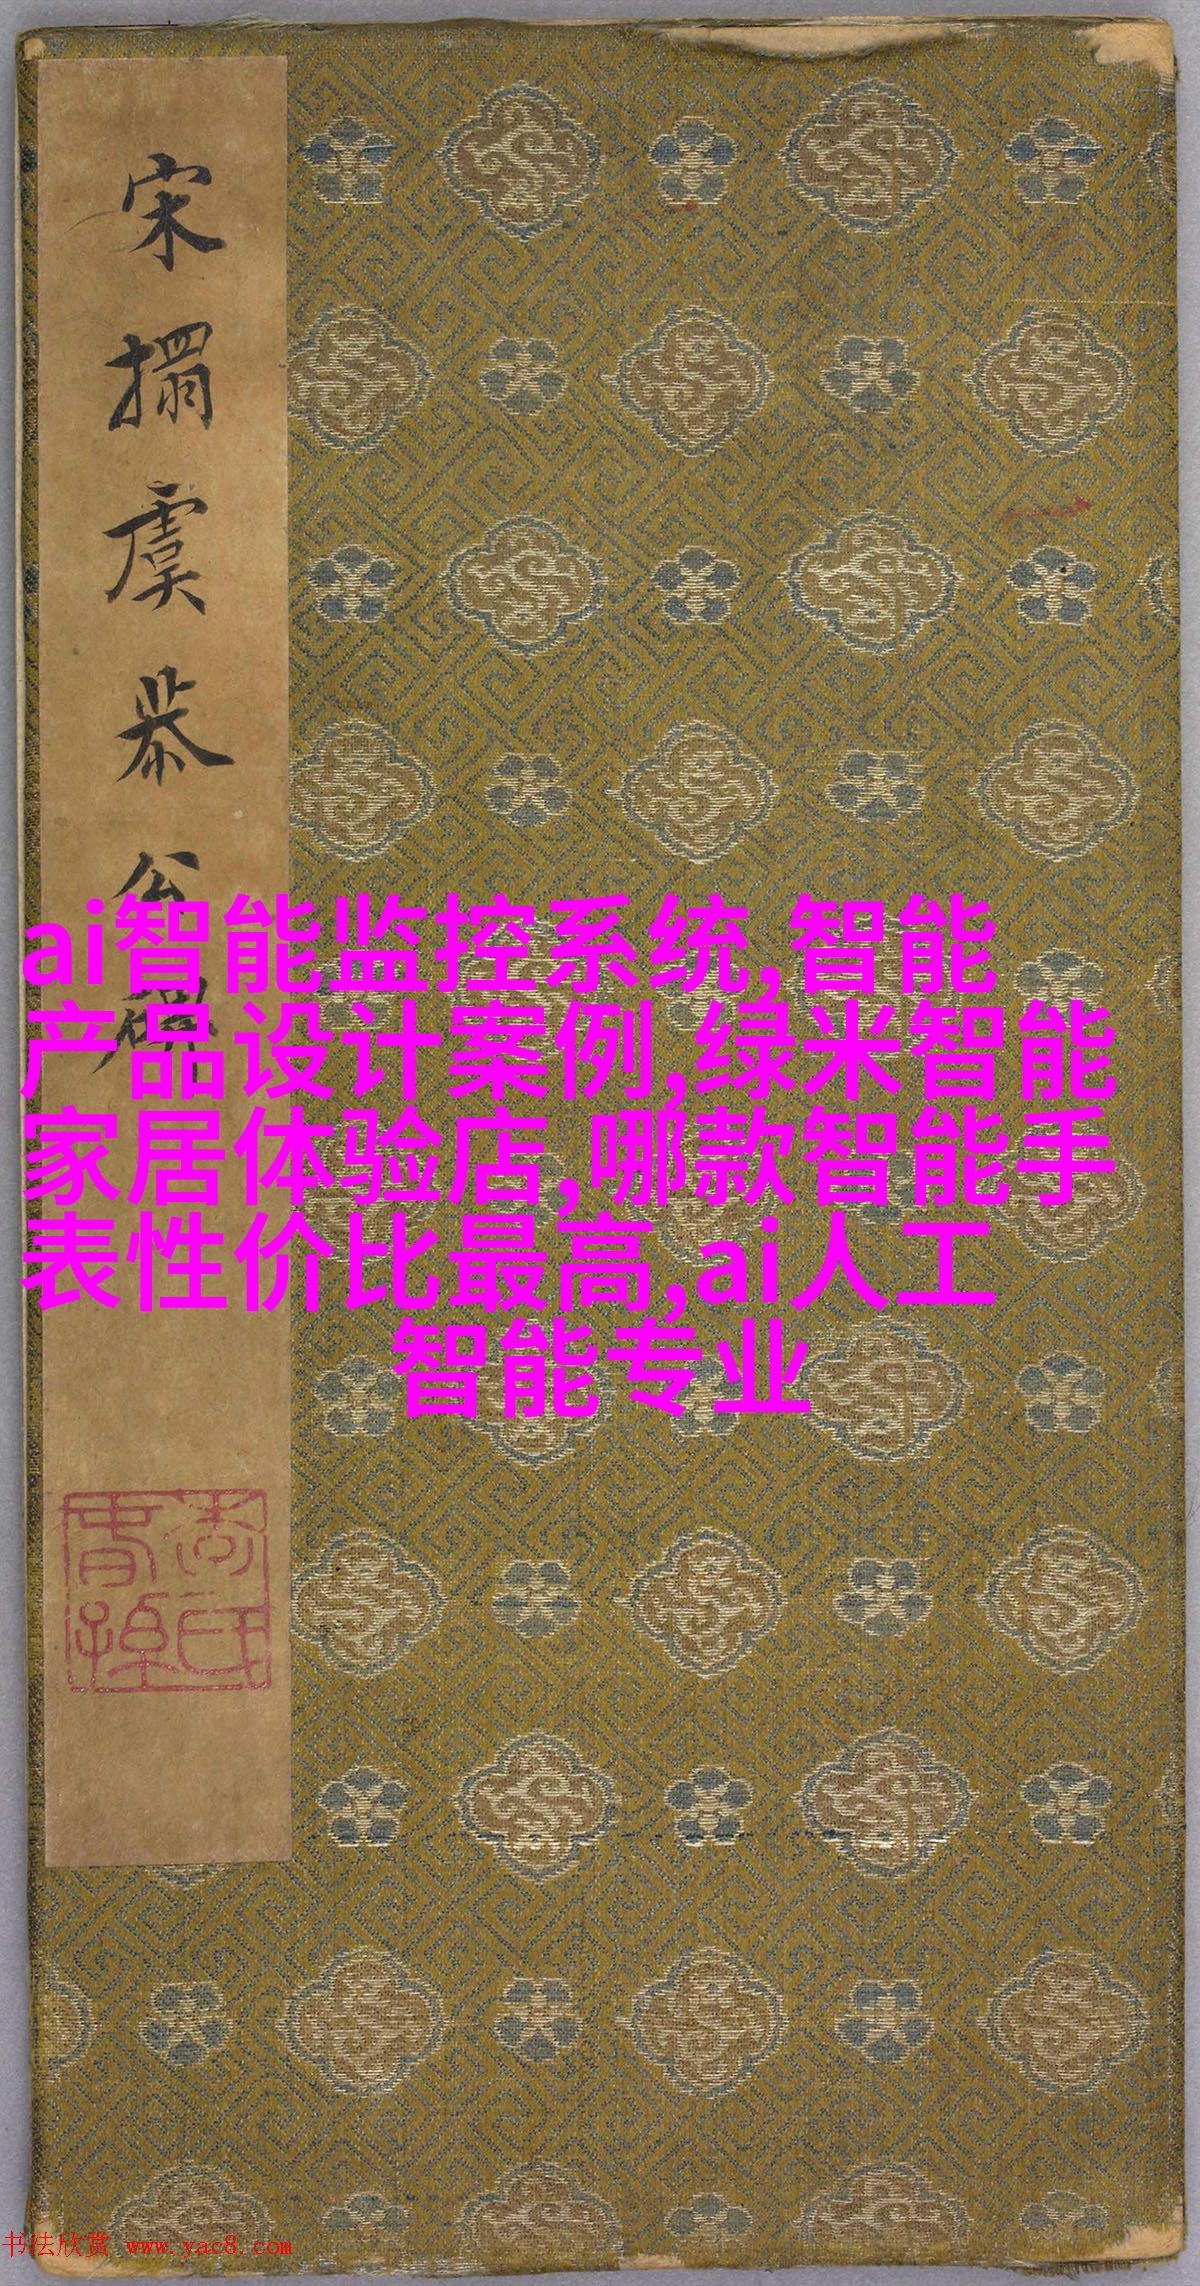 宋搨虞恭公碑
ai智能监控系统,智能
产品设计案例,绿米智能
家居体验店,哪款智能手
表性价比最高,ai人工
智能专业
书法欣赏 www.yac8.com